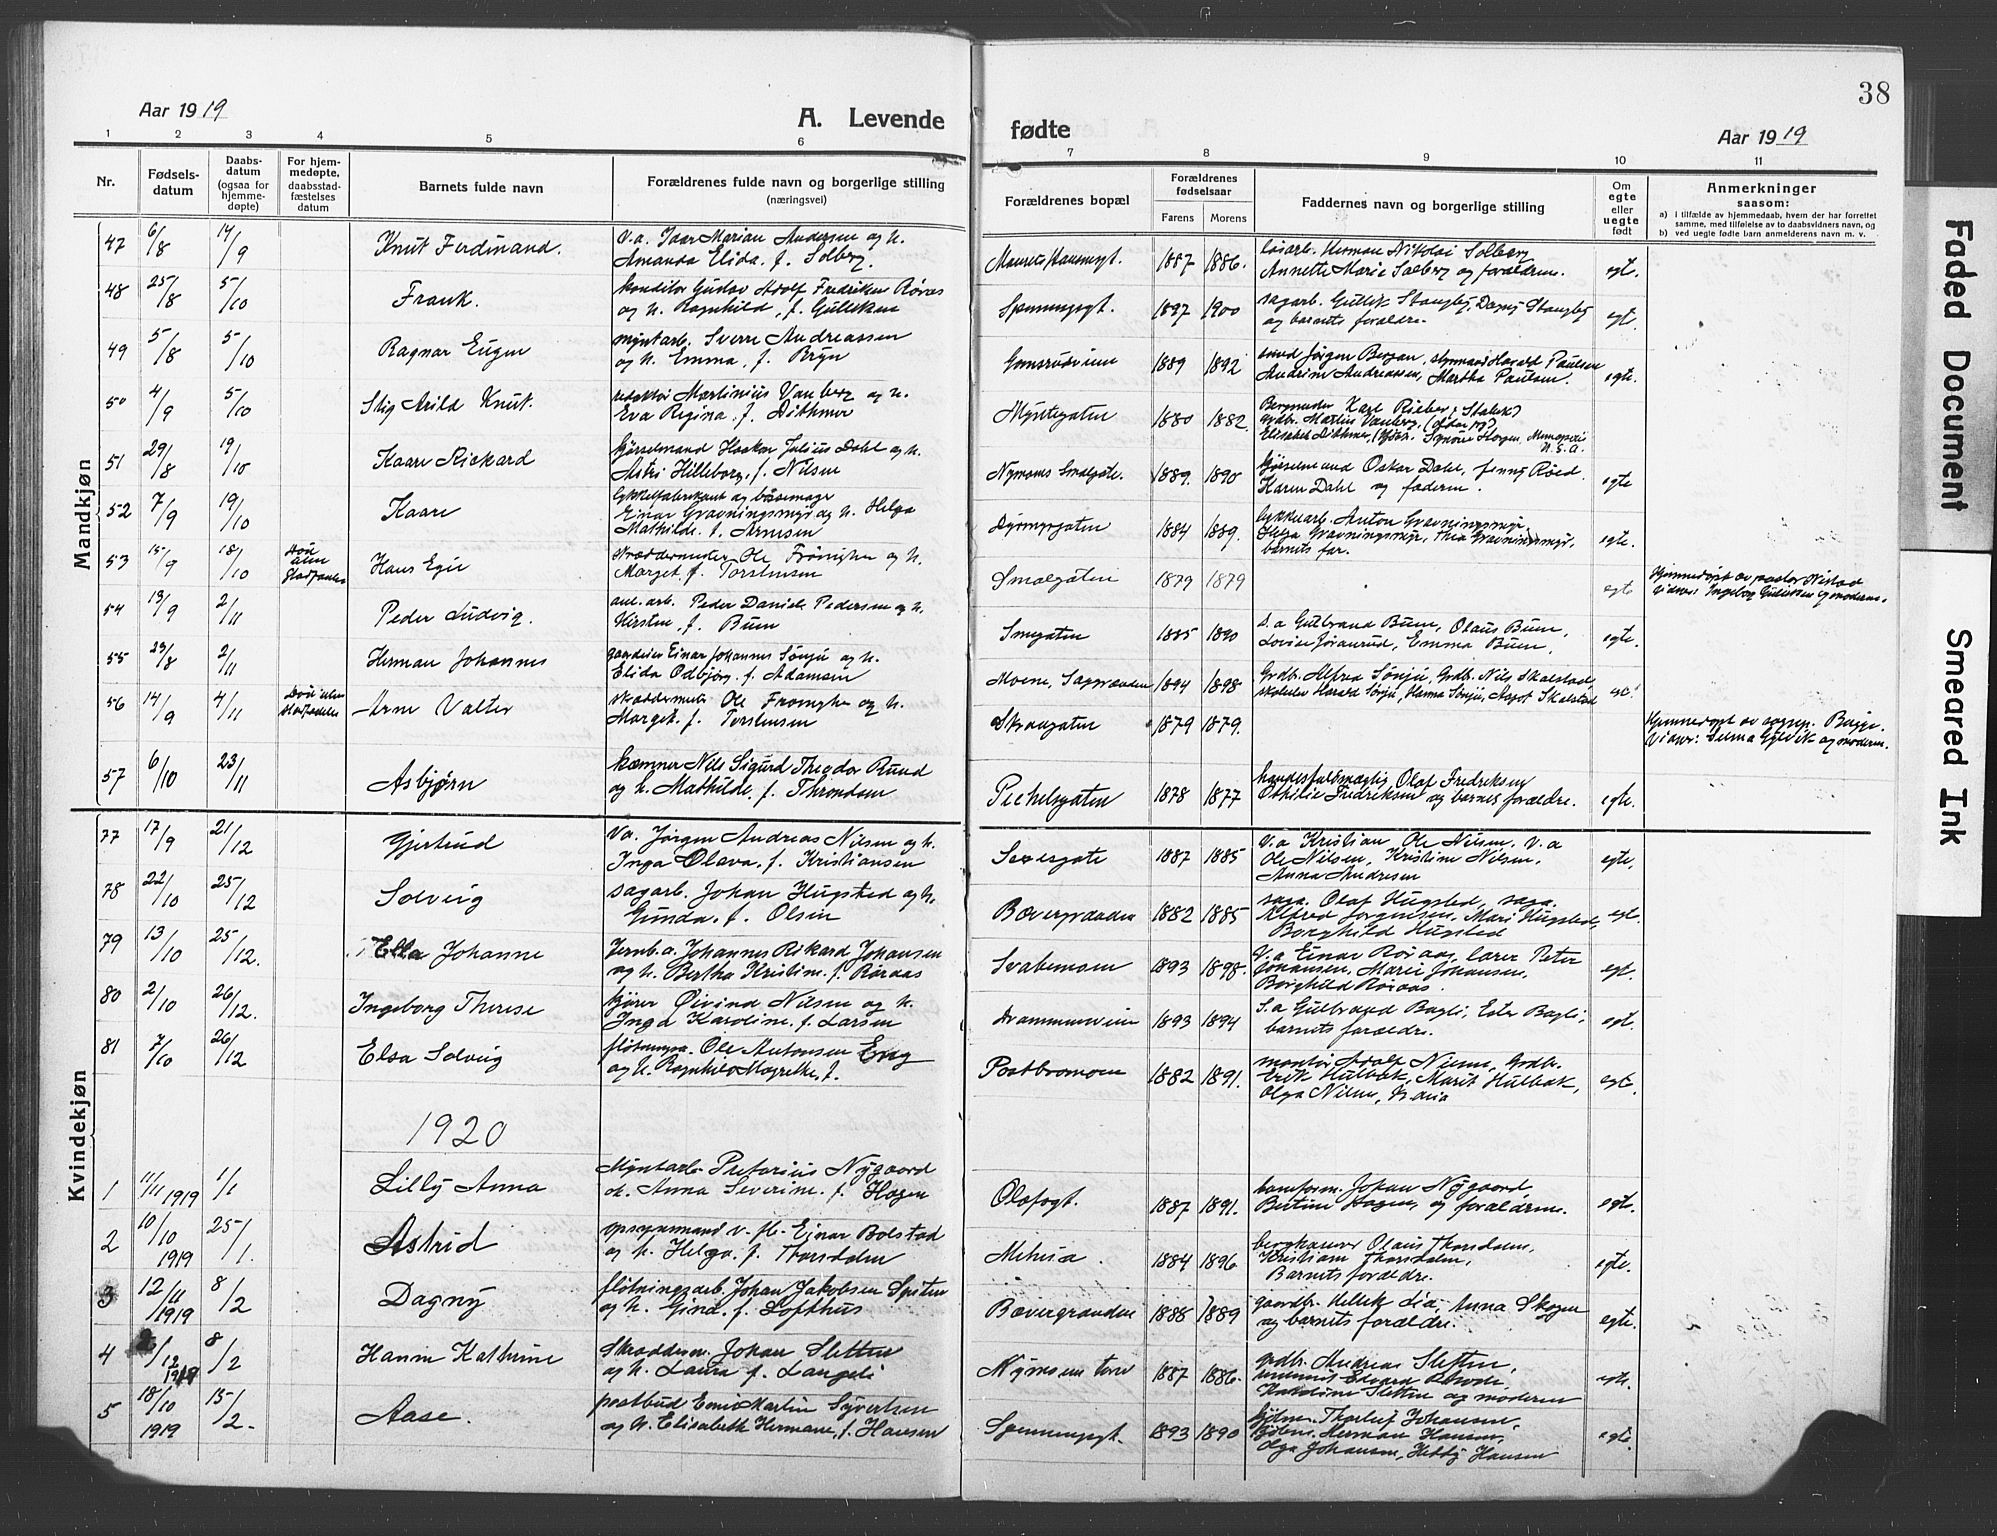 38
Aar 1919
A. Levende
fødte
Aar 1919
1 2 3 4 5 6 7 8 9 10 11
Nr.
Fødsels-
datum
Daabs-
datum
(ogsaa for
hjemme-
døpte)
For hjem-
medøpte,
daabsstad-
fæstelses
datum
Barnets fulde navn
Forældrenes fulde navn og borgerlige stilling
(næringsvei)
Forældrenes bopæl
Forældrenes
fødselsaar
Farens Morens
Faddernes navn og borgerlige stilling
Om
egte
eller
uegte
født
Anmerkninger
saasom:
a) i tilfælde av hjemmedaab, hvem der har forrettet
samme, med tilføielse av to daabsvidners navn, og
b) ved uegte fødte barn anmelderens navn m. v.
Mandkjøn
47 6/8 14/9 Knut Ferdinand. v.a. Marian Andersen og h.
Amanda Elida, f. Solberg. 1887 1886. Herman Nikolai Solberg
Annette Marie Solberg og forældrene. egte.
48 25/8 5/10 Frank. konditor Gustav Adolf Fredriksen Røraas
og h. Ragnhild, f. Gulliksen Spennengt. 1897 1900 sagarb. Gullik Stangeby, Dagny Stangeby
og barnets forældre. egte.
49 5/8 5/10 Ragnar Eugen myntarb. Sverre Andreassen
og h. Emma, f. Bryn Gomsrudveien 1889 1892 Jørgen Bergan, Harald Paulsen
Andrine Andreassen, Martha Paulsen. egte.
50 4/9 5/10 Stig Arild Knut. redaktør Martinius Vanberg og h.
Eva Regina, f. Dithmer Myntegaten 1880 1882. Karl Rieber
Martin Vanberg,
Elisabeth Dithmer, Signe Horgen, Minneapolis
U. S. A.
51 29/8 19/10 Kaare Rickard kjørselmand Haakon Julius Dahl og h.
Astri Hilleborg, f. Nilsen Nymoens Smalgate. 1889. 1890 kjørselmand Oskar Dahl, Jenny Røed.
Karen Dahl og faderen. egte
52 7/9 19/10 Kaare Lykkelfabrikant og bøssemager
Einar Gravningsmyr og h. Helga
Mathilde, f. Arnesen Dyrmyrgaten 1884 1889. Anton Gravningsmyr,
Helga Gravningsmyr, Thea Gravningsmyr,
barnets far. egte.
53 15/9 18/10 død uten stadfæstelse Hans Egil skræddermester Ole Frøvighen og h.
Marget, f. Torstensen Smalgaten 1879 1879 egte Hjemmedøpt av pastor Nistad
vidner: Ingeborg Gulliksen og moderen.
54 19/9 2/11 Peder Ludvig. anl. arb. Peder Daniel Pedersen og h.
Kirsten, f. Buen Smegaten 1885 1890 s.a Gulbrand Buen, Olaus Buen,
Lovise Joranrud, Emma Buen. egte.
55 23/8 2/11 Herman Johannes gaardeier Einar Johannes Sønju og h.
Elida Odbjørg, f. Adamsen Moene, Saggrænden 1894 1898 Grdb. Alfred Sønju, Grdb. Nils Skalstad
Harald Sønju, Hanna Sønju, Aagot Skalstad
56 14/9 4/11 Død uten stadfæstelse Arne Valter skræddermester Ole Frøvighen og h.
Marget, f. Torstensen Skraugaten 1879 1879. Hjemmedøpt av Bugge.
Vidner: Selma og moderen.
57 6/10 23/11 Asbjørn kæmner Nils Sigurd Theodor Ruud
og h. Mathilde, f. Throndsen Peckelsgaten 1878 1877 handelsfuldmægtig Olaf Fredriksen
Othilie Fredriksen og barnets forældre. egte.
Kvindekjøn
77 17/9 21/12 Gjertrud v.a. Jørgen Andreas Nilsen og h.
Inga Olava, f. Kristiansen 1887 1885 v.a Kristian Ole Nilsen, v.a
Ole Nilsen, Kristine Nilsen,
Anna Andresen egte.
78 22/10 25/12 Solveig sagarb. Johan Hugsted og h.
Gunda, f. Olsen Bævergrænden 1882 1885 saga. Olaf Hugsted, saga.
Alfred Jørgensen, Mari Hugsted,
Borghild Hugsted egt.
79 13/10 25/12. Ella Johanne Jernb.a. Johannes Rikard Johansen
og h. Bertha Kristine, f. Røraas Svabemoen 1893 1898. v.a Einar Røraas, lærer Peter
Johansen, Marie Johansen,
Borghild Røraas. egt.
80 2/10 26/12. Ingeborg Therese kjører Øivind Nilsen og h.
Inga Karoline, f. Larsen Drammensveien 1893 1894 S.a Gulbrand Bagli, Ester Bagli,
barnets forældre. egt.
81 7/10 26/12 Elsa Solveig Ole Antonsen Eng
og h. Ragnhild Magrethe, f. Postbromoen 1882 1891. montør Adolf Nilsen, Grdb.
Erik Hulbak, Marit Hulbak,
Olga Nilsen, egte.
1920
1 11/11 1919 1/1 Lilly Anna Myntarb. Pretorius Nygaard
h. Anna Severine, f. Hagen Olafsgt. 1887 1891. Johan Nygaard
Bertine Hagen, og forældrene. egte.
2 10/10 1919 25/1. Astrid opsynsmand v. fl. Ejnar Bolstad
og h. Helga, f. Thorsdalen Metusa. 1884 1896 berghauer Olaus Thorsdalen,
Kristiane Thorsdalen,
Barnets forældre. egte.
3 12/11 1919 8/2 Dagny fløtningsarb. Johan Jakobsen Spiten
og h. Gina, f. Lofthus Bævergrænden 1888 1889 gaardbr. Kittil Lia, Anna Skogen
og barnets forældre. egte.
4 /12 1919 8/2 Hanna Kathrine Skræddersv. Johan Sletten
og h. Laura f. Langeli Nymoens torv 1887 1886. grdbr. Andreas Sletten,
Edvard
Karoline Sletten og moderen egte.
5 18/10 1919 15/2. Aase. postbud Martin Syvertsen
og h. Elisabeth Hermane, f. Hansen Spennengt. 1893 1890 Thorleif Johansen,
Herman Hansen,
Olga Johansen, Hebby Hansen egte.
Faded Document
Smeared Ink